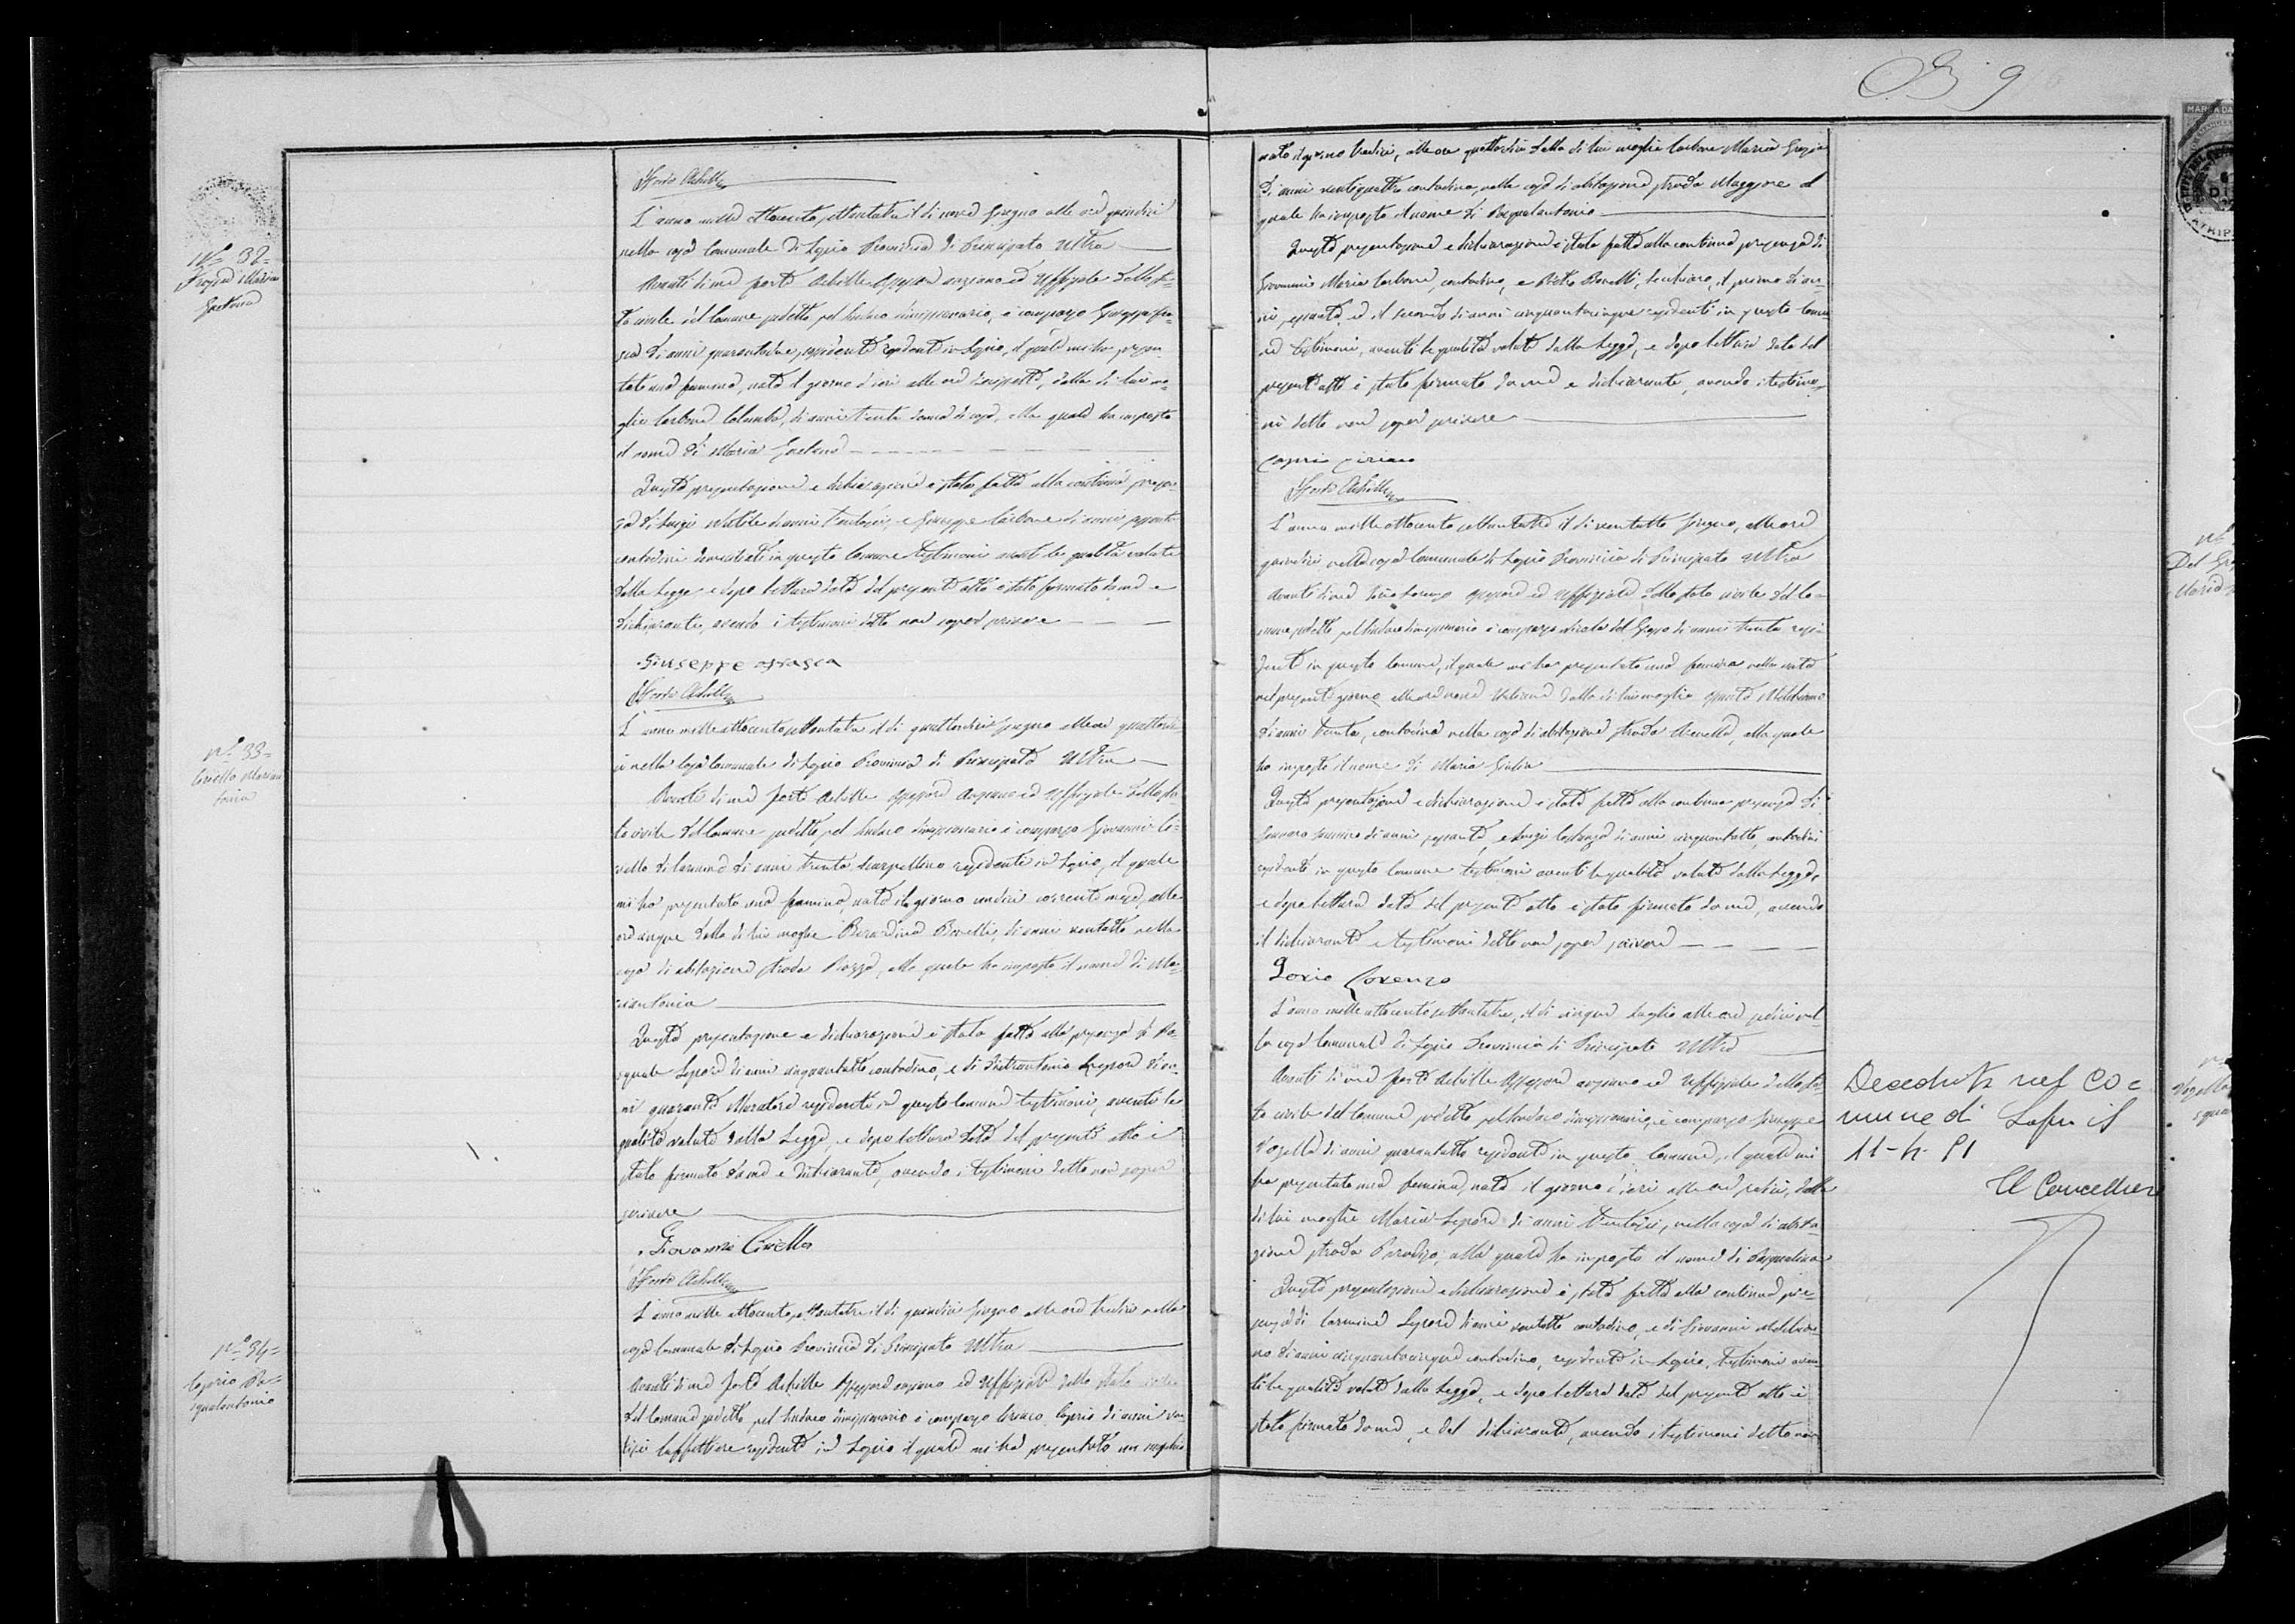 9
Forte Achille
L'anno mille ottocento settantatre il dì nove Giugno alle ore quindici
nella casa Comunale di Lapio Provincia di Principato Ultra
N.º 32=
Frasca Maria
Gaetana
Avanti di me Forte Achille Assessore anziano ed Uffiziale dello sta-
to civile del Comune suddetto pel Sindaco dimissionario, è comparso Giuseppe Fra-
sca di anni quarantadue, residente in Lapio, il quale mi ha presen-
tato una femmina, nata il giorno d'ieri alle ore, dalla di lui mo-
glie Carbone Colomba, di anni trenta donna di casa, alla quale ha imposto
il nome di Maria Gaetana
Questa presentazione e dichiarazione è stata fatta alla continua presen-
za di Luigi di anni e Giuseppe Carbone di anni sessanta
contadini domiciliati in questo Comune testimoni aventi le qualità volute
dalla Legge e dopo lettura data del presente atto è stato firmato da me e
dichiarante, avendo i testimoni detto non saper scrivere
Giuseppe Frasca
Forte Achille
N.º 33=
Ciriello Marian
tonia
L'anno mille ottocento settantatre il dì quattordici Giugno alle ore quattordi
ci nella Casa Comunale di Lapio Provincia di Principato Ultra
Avanti di me Forte Achille Assessore Anziano ed Uffiziale dello sta-
to civile del Comune suddetto, pel Sindaco dimissionario è comparso Giovanni Ci-
riello di Carmine di anni trenta scarpellino residente in Lapio, il quale
mi ha presentato una femmina, nata il giorno undici corrente mese, alle
ore cinque dalla di lui moglie Berardina Bonelli, di anni ventotto nella
casa di abitazione strada Piazza, alla quale ha imposto il nome di Ma-
riantonia
Questa presentazione e dichiarazione è stata fatta alla presenza di Pa-
squale Lepore di anni cinquantotto contadino, e di Pietrantonio Lepore di an-
ni quaranta Muratore residenti in questo Comune testimoni, aventi le
qualità volute dalla Legge, e dopo lettura data del presente atto è
stato firmato da me e dichiarante, avendo i testimoni detto non saper
scrivere
Giovanni Ciriello
Forte Achille
N.º 34=
Caprio Pa=
squalantonio
L'anno mille ottocento settantatre il dì quindici Giugno alle ore tredici nella
casa Comunale di Lapio Provincia di Principato Ultra
Avanti di me Forte Achille Assessore anziano ed Uffiziale dello stato civile
del Comune suddetto pel Sindaco dimissionario è comparso Ciriaco Caprio di anni ven
residente in Lapio il quale mi ha presentato un maschio
nato il giorno tredici, alle ore quattordici dalla di lui moglie Carbone Maria Grazia
di anni ventiquattro contadina, nella casa di abitazione strada Maggiore al
quale ha imposto il nome di Pasqualantonio
Questa presentazione e dichiarazione è stata fatta alla continua presenza di
Giovanni Maria Carbone, contadino, e Pietro Bonelli, il primo di an-
ni sessanta, ed il secondo di anni cinquantacinque residenti in questo Comu-
ne testimoni, aventi le qualità volute dalla Legge, e dopo lettura data del
presente atto è stato firmato da me e dichiarante, avendo i testimo-
ni detto non saper scrivere
Caprio Ciriaco
Forte Achille
L'anno mille ottocento settantatre il dì ventotto Giugno, alle ore
quindici nella casa Comunale di Lapio Provincia di Principato Ultra
Avanti di me Lorenzo Assessore ed Uffiziale dello stato civile del Co-
mune suddetto pel Sindaco dimissionario è comparso Nicola del Grosso di anni trenta resi-
dente in questo Comune, il quale mi ha presentato una femina nella nata
nel presente giorno alle ore nove Italiane dalla di lui moglie
di anni trenta, contadina nella casa di abitazione strada, alla quale
ha imposto il nome di Maria Giulia
Questa presentazione e dichiarazione è stata fatta alla continua presenza di
Gennaro di anni sessanta, e Luigi Costanza di anni cinquantotto, contadini
residenti in questo Comune testimoni aventi le qualità volute dalla Legge,
e dopo lettura data del presente atto è stato firmato da me, avendo
il dichiarante e testimoni detto non saper scrivere
Lorenzo
L'anno mille ottocento settantatre, il dì cinque Luglio alle ore sedici nel-
la casa Comunale di Lapio Provincia di Principato Ultra
Avanti di me Forte Achille Assessore anziano ed Uffiziale dello sta-
to civile del Comune suddetto pel Sindaco dimissionario, è comparso Giuseppe
Vozella di anni quarantotto residente in questo Comune, il quale mi
ha presentato una femina, nata il giorno d'ieri alle ore sedici, dalla
di lui moglie Maria Lepore di anni, nella casa di abita-
zione strada Paradiso, alla quale ha imposto il nome di Pasqualina
Questa presentazione e dichiarazione è stata fatta alla continua pre-
senza di Carmine Lepore di anni ventotto contadino, e di Giovanni
no di anni cinquantacinque contadino, residenti in Lapio, testimoni aven-
ti le qualità volute dalla Legge, e dopo lettura data del presente atto è
stato firmato da me, e dal dichiarante, avendo i testimoni detto non
Deceduta nel Co=
mune di Lapio il
Il Cancelliere
N.º
Del Gro
Maria
N.º
Vozella
squa
MARCA DA